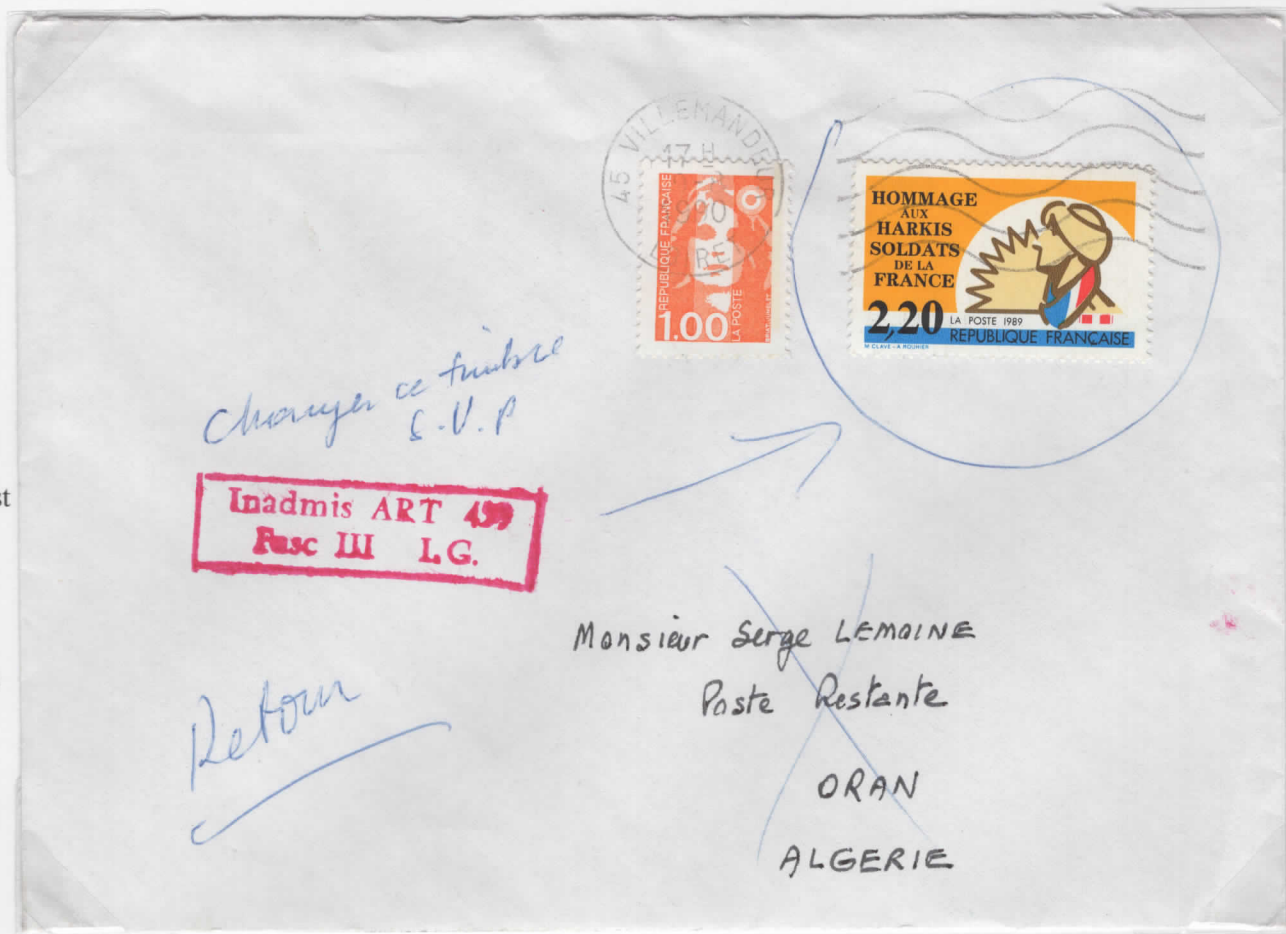 45 VILLEMANDEUR
17 H
1990
LOIRET
REPUBLIQUE FRANÇAISE
1.00
LA POSTE
HOMMAGE
AUX
HARKIS
SOLDATS
DE LA
FRANCE
2,20
LA POSTE 1989
REPUBLIQUE FRANÇAISE
M CLAVE - A ROUHIER
Changer ce timbre
S.V.P
st
Inadmis ART 459
Fasc III I.G.
Monsieur Serge LEMOINE
Poste Restante
Retour
ORAN
ALGERIE